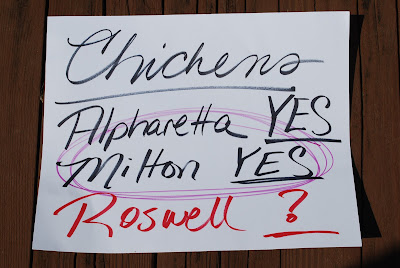 Chickens
Alpharetta YES
Milton YES
Roswell ?